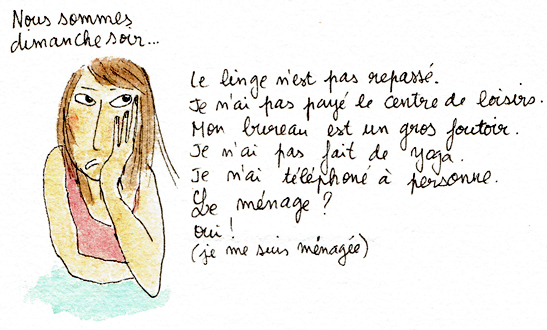 Nous sommes
dimanche soir...
Le linge n'est pas repassé.
Je n'ai pas payé le centre de loisirs.
Mon bureau est un gros foutoir.
Je n'ai pas fait de yoga.
Je n'ai téléphoné à personne.
Le ménage ?
oui !
(je me suis ménagée)